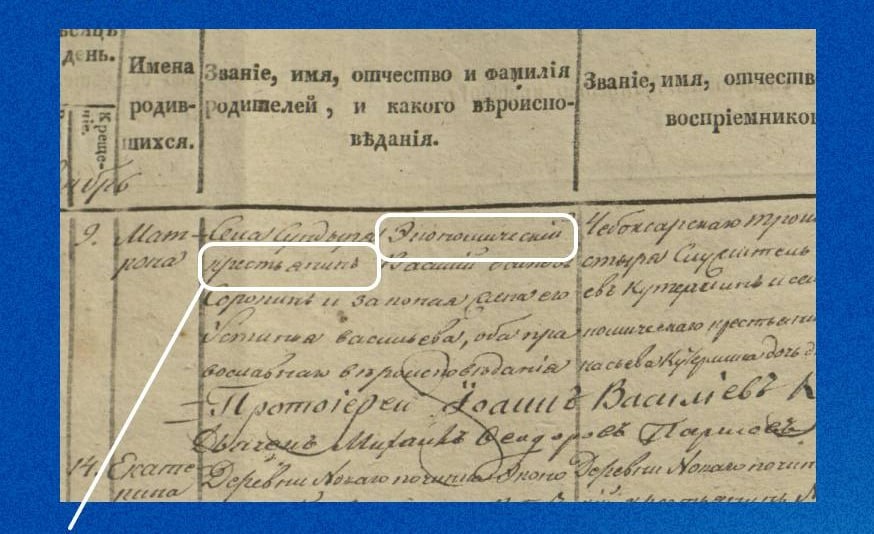 день.
Имена родив- шихся.
Званіе, имя, отчество и фамилія
родителей, и какого вѣроиспо-
вѣданія.
Званіе, имя, отчеств
воспріемнико
Креще-
ніе.
9. Мат-
рона
Села Сундыря Экономическій
крестьянинъ Василій
Сорокинъ и законная жена его
Устинья васильева, оба пра
вославнаго вѣроисповѣданія
Чебоксарскаго Трои
стыря Служитель
евъ Кутергинъ и
номическаго крестьянина
Кутергина дочь
Протоіерей Іоаннъ Васильевъ
Дьячекъ Михаилъ Феодоровъ
14. Екате
рина
Деревни Новаго починка Эконо
Деревни Новаго почин